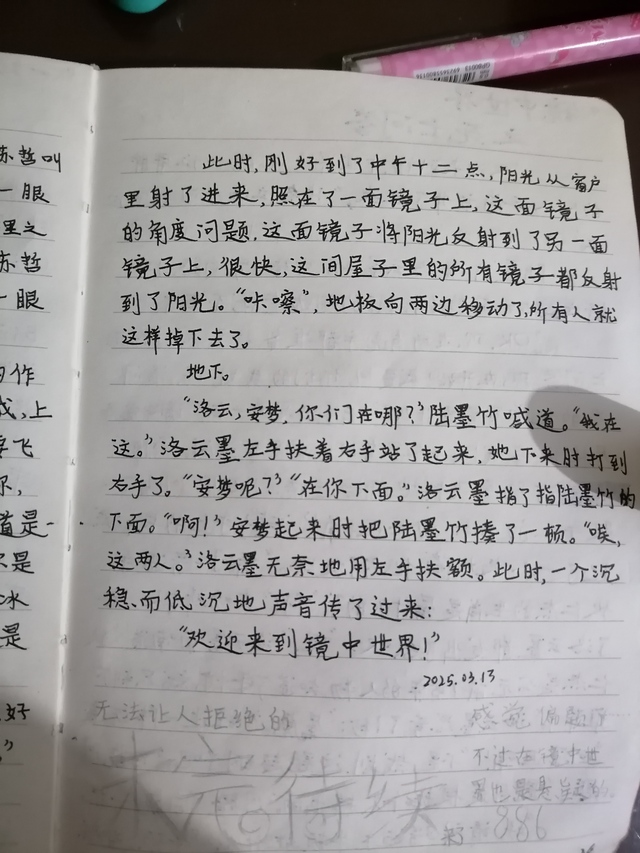 苏哲叫
一眼
里之
苏哲
一眼
的作
成,上
字飞
尔,
道是一
尔是
冰
是
好
此时,刚好到了中午十二点,阳光从窗户
里射了进来,照在了一面镜子上,这面镜子
的角度问题,这面镜子将阳光反射到了另一面
镜子上,很快,这间屋子里的所有镜子都反射
到了阳光。“咔嚓”,地板向两边移动了,所有人就
这样掉下去了。
地下。
“洛云,安梦,你们在哪?”陆墨竹喊道。“我在
这。”洛云墨左手扶着右手站了起来,她下来时打到
右手了。“安梦呢?”“在你下面。”洛云墨指了指陆墨竹的
下面。“啊!”安梦起来时把陆墨竹揍了一顿。“唉,
这两人。”洛云墨无奈地用左手扶额。此时,一个沉
稳、而低沉地声音传了过来:
“欢迎来到镜中世界!”
2025.03.13
无法让人拒绝的
感觉偏题了
不过在镜中世
未完。待续
886